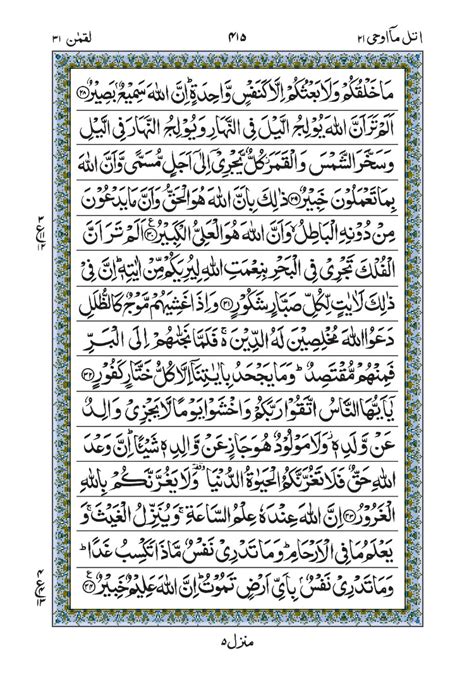 اتل مآاوحی ۲۱ ۴۱۵ لقمٰن ۳۱
مَا خَلۡقُكُمۡ وَلَا بَعۡثُكُمۡ اِلَّا كَنَفۡسٍ وَّاحِدَةٍ ؕ اِنَّ اللّٰهَ سَمِيۡعٌۢ بَصِيۡرٌ ﴿۲۸﴾
اَلَمۡ تَرَ اَنَّ اللّٰهَ يُوۡلِجُ الَّيۡلَ فِى النَّهَارِ وَيُوۡلِجُ النَّهَارَ فِى الَّيۡلِ
وَسَخَّرَ الشَّمۡسَ وَالۡقَمَرَ كُلٌّ يَّجۡرِىۡۤ اِلٰٓى اَجَلٍ مُّسَمًّى وَّاَنَّ اللّٰهَ
بِمَا تَعۡمَلُوۡنَ خَبِيۡرٌ ﴿۲۹﴾ ذٰلِكَ بِاَنَّ اللّٰهَ هُوَ الۡحَقُّ وَاَنَّ مَا يَدۡعُوۡنَ
مِنۡ دُوۡنِهِ الۡبَاطِلُ ۙ وَاَنَّ اللّٰهَ هُوَ الۡعَلِىُّ الۡكَبِيۡرُ ﴿۳۰﴾ اَلَمۡ تَرَ اَنَّ
الۡفُلۡكَ تَجۡرِىۡ فِى الۡبَحۡرِ بِنِعۡمَتِ اللّٰهِ لِيُرِيَكُمۡ مِّنۡ اٰيٰتِهٖ ؕ اِنَّ فِىۡ
ذٰلِكَ لَاٰيٰتٍ لِّكُلِّ صَبَّارٍ شَكُوۡرٍ ﴿۳۱﴾ وَاِذَا غَشِيَهُمۡ مَّوۡجٌ كَالظُّلَلِ
دَعَوُا اللّٰهَ مُخۡلِصِيۡنَ لَهُ الدِّيۡنَ ۚ فَلَمَّا نَجّٰٮهُمۡ اِلَى الۡبَرِّ
فَمِنۡهُمۡ مُّقۡتَصِدٌ ؕ وَمَا يَجۡحَدُ بِاٰيٰتِنَاۤ اِلَّا كُلُّ خَتَّارٍ كَفُوۡرٍ ﴿۳۲﴾
يٰۤاَيُّهَا النَّاسُ اتَّقُوۡا رَبَّكُمۡ وَاخۡشَوۡا يَوۡمًا لَّا يَجۡزِىۡ وَالِدٌ
عَنۡ وَّلَدِهٖ وَلَا مَوۡلُوۡدٌ هُوَ جَازٍ عَنۡ وَّالِدِهٖ شَيۡـًٔا ؕ اِنَّ وَعۡدَ
اللّٰهِ حَقٌّ فَلَا تَغُرَّنَّكُمُ الۡحَيٰوةُ الدُّنۡيَا ۥ وَلَا يَغُرَّنَّكُمۡ بِاللّٰهِ
الۡغَرُوۡرُ ﴿۳۳﴾ اِنَّ اللّٰهَ عِنۡدَهٗ عِلۡمُ السَّاعَةِ ۚ وَيُنَزِّلُ الۡغَيۡثَ ۚ وَ
يَعۡلَمُ مَا فِى الۡاَرۡحَامِ ؕ وَمَا تَدۡرِىۡ نَفۡسٌ مَّاذَا تَكۡسِبُ غَدًا ؕ
وَمَا تَدۡرِىۡ نَفۡسٌۢ بِاَىِّ اَرۡضٍ تَمُوۡتُ ؕ اِنَّ اللّٰهَ عَلِيۡمٌ خَبِيۡرٌ ﴿۳۴﴾
منزل ۵